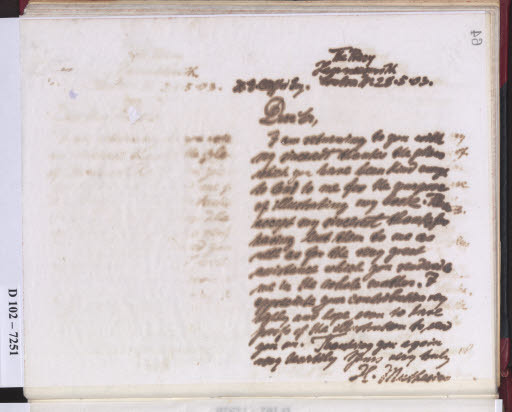 49
The Mall
Hammersmith
London W. 28.5.03.
Dear Sir,
I am returning to you with
my sincerest thanks the plans
which you have been kind enough
to lend to me for the purpose
of illustrating my book. Please
accept my sincerest thanks for
having lent them to me as
well as for the very great
assistance which you rendered
me in the whole matter. I
appreciate your contribution very
highly and hope soon to have
proofs of the illustrations to send
you on. Thanking you again
very heartily Yours very truly
H. Muthesius
D 102 – 7251